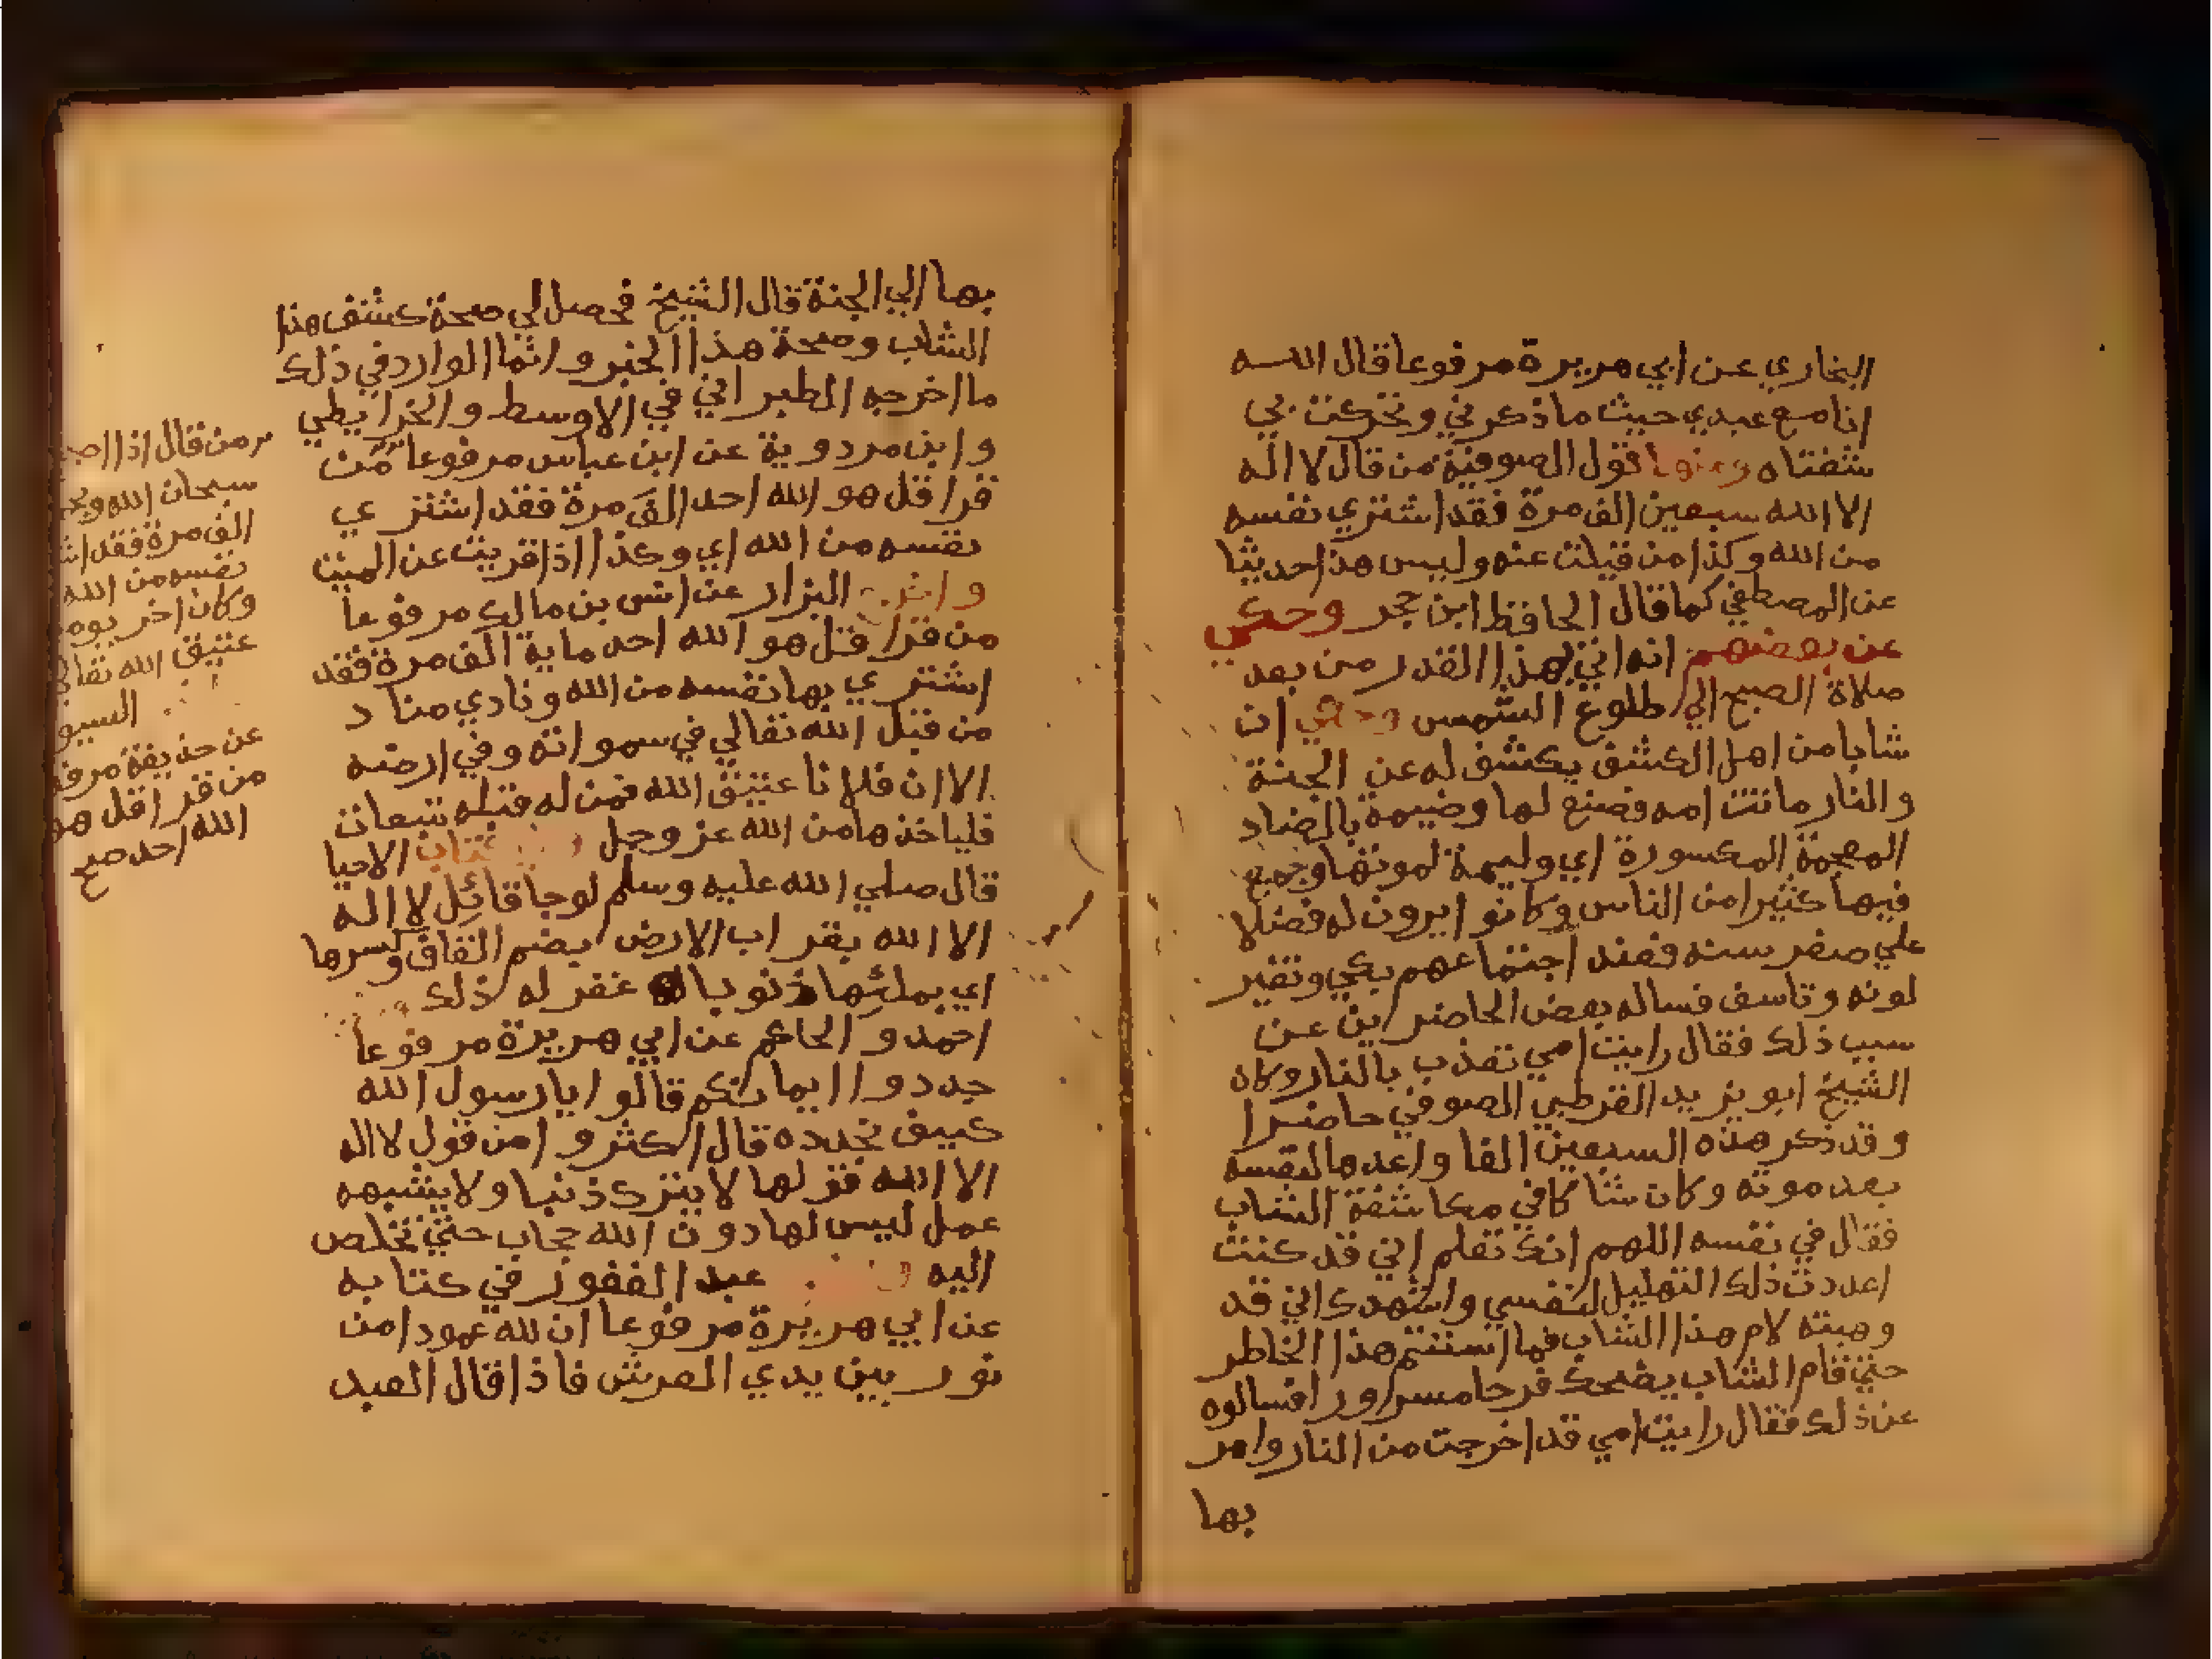 البخاري عن ابي هريرة مرفوعا قال الله
انا مع عبدي حيث ما ذكرني وتحركت بي
شفتاه ومنها قول الصوفية من قال لا اله
الا الله سبعين الف مرة فقد اشتري نفسه
من الله وكذا من قيلت عنه وليس هذا حديثا
عن المصطفي كما قال الحافظ ابن حجر وحكي
عن بعضهم انه اتي بهذا القدر من بعد
صلاة الصبح الي طلوع الشمس وحكي ان
شابا من اهل الكشف يكشف له عن الجنة
والنار ماتت امه فصنع لها وضيمة بالضاد
المعجمة المكسورة اي وليمة لموتها وجمع
فيها كثيرا من الناس وكانوا يرون له فضلا
علي صغر سنه فعند اجتماعهم بكي وتغير
لونه وتاسف فساله بعض الحاضرين عن
سبب ذلك فقال رايت امي تعذب بالنار وكان
الشيخ ابو يزيد القرطبي الصوفي حاضرا
وقد ذكر هذه السبعين الفا واعدها لنفسه
بعد موته وكان شاكا في مكاشفة الشاب
فقال في نفسه اللهم انك تعلم اني قد كنت
اعددت ذلك التهليل لنفسي واشهدك اني قد
وهبته لام هذا الشاب فما استتم هذا الخاطر
حتي قام الشاب يضحك فرحا مسرورا فسالوه
عن ذلك فقال رايت امي قد اخرجت من النار وامر
بها
بها الي الجنة قال الشيخ فحصل لي صحة كشف هذا
الشاب وصحة هذا الخبر وانما الوارد في ذلك
ما اخرجه الطبراني في الاوسط والخرايطي
وابن مردوية عن ابن عباس مرفوعا من
قرا قل هو الله احد الف مرة فقد اشتري
نفسه من الله اي وكذا اذا قريت عن الميت
البزار عن انس بن مالك مرفوعا
من قرا قل هو الله احد ماية الف مرة فقد
اشتري بها نفسه من الله ونادي مناد
من قبل الله تعالي في سمواته وفي ارضه
الا ان فلانا عتيق الله فمن له قبله تبعات
فلياخذها من الله عز وجل وفي كتاب الاحيا
قال صلي الله عليه وسلم لو جا قائل لا اله
الا الله بقراب الارض بضم القاف وكسرها
اي بملئها ذنوبا غفر له ذلك
احمد والحاكم عن ابي هريرة مرفوعا
جددوا ايمانكم قالوا يا رسول الله
كيف نجدده قال اكثروا من قول لا اله
الا الله فقولها لا يترك ذنبا ولا يشبهه
عمل ليس لها دون الله حجاب حتي تخلص
اليه عبد الغفور في كتابه
عن ابي هريرة مرفوعا ان لله عمودا من
نور بين يدي العرش فاذا قال العبد
من قال اذا
سبحان الله
الف مرة فقد
نفسه من الله
وكان اخر
عتيق الله
عن حذيفة
من قرا قل هو
الله احد صح